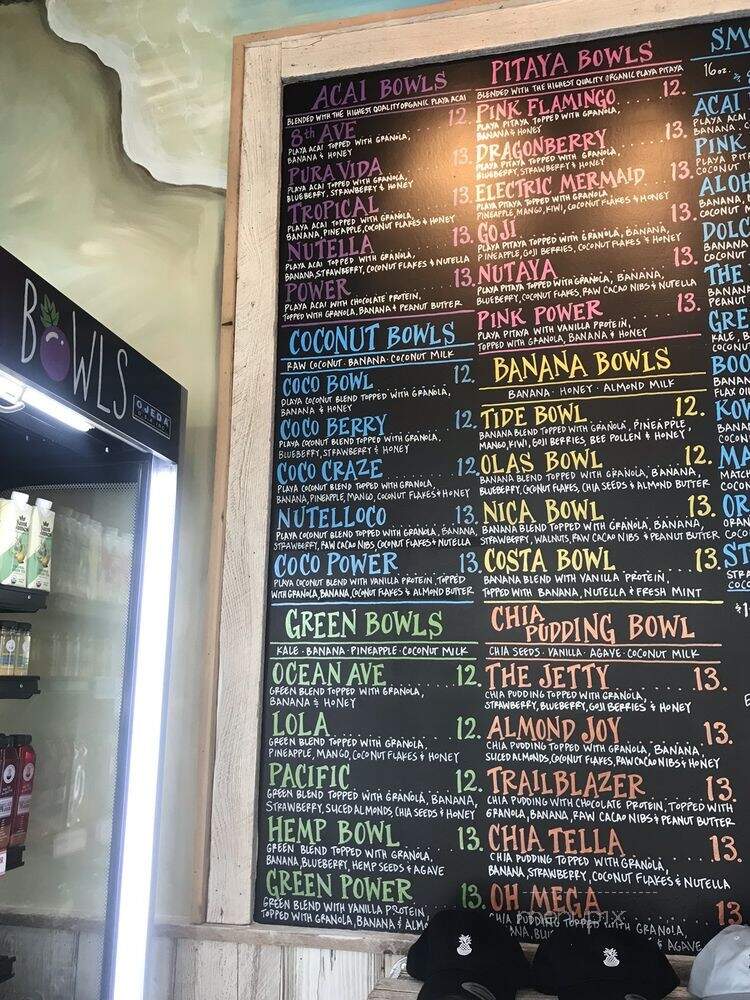 ACAI BOWLS
BLENDED WITH THE HIGHEST QUALITY ORGANIC PLAYA ACAI
8th AVE 12.
PLAYA ACAI TOPPED WITH GRANOLA,
BANANA & HONEY
PURA VIDA 13.
PLAYA ACAI TOPPED WITH GRANOLA,
BLUEBERRY, STRAWBERRY & HONEY
TROPICAL 13.
PLAYA ACAI TOPPED WITH GRANOLA,
BANANA, PINEAPPLE, COCONUT FLAKES & HONEY
NUTELLA 13.
PLAYA ACAI TOPPED WITH GRANOLA,
BANANA, STRAWBERRY, COCONUT FLAKES & NUTELLA
POWER 13.
PLAYA ACAI WITH CHOCOLATE PROTEIN,
TOPPED WITH GRANOLA, BANANA & PEANUT BUTTER
COCONUT BOWLS
RAW COCONUT · BANANA · COCONUT MILK
COCO BOWL 12.
PLAYA COCONUT BLEND TOPPED WITH GRANOLA,
BANANA & HONEY
COCO BERRY 12.
PLAYA COCONUT BLEND TOPPED WITH GRANOLA,
BLUEBERRY, STRAWBERRY & HONEY
COCO CRAZE 12.
PLAYA COCONUT BLEND TOPPED WITH GRANOLA,
BANANA, PINEAPPLE, MANGO, COCONUT FLAKES & HONEY
NUTELLOCO 13.
PLAYA COCONUT BLEND TOPPED WITH GRANOLA, BANANA,
STRAWBERRY, RAW CACAO NIBS, COCONUT FLAKES & NUTELLA
COCO POWER 13.
PLAYA COCONUT BLEND WITH VANILLA PROTEIN, TOPPED
WITH GRANOLA, BANANA, COCONUT FLAKES & ALMOND BUTTER
GREEN BOWLS
KALE · BANANA · PINEAPPLE · COCONUT MILK
OCEAN AVE 12.
GREEN BLEND TOPPED WITH GRANOLA,
BANANA & HONEY
LOLA 12.
GREEN BLEND TOPPED WITH GRANOLA,
PINEAPPLE, MANGO, COCONUT FLAKES & HONEY
PACIFIC 12.
GREEN BLEND TOPPED WITH GRANOLA, BANANA,
STRAWBERRY, SLICED ALMONDS, CHIA SEEDS & HONEY
HEMP BOWL 13.
GREEN BLEND TOPPED WITH GRANOLA,
BANANA, BLUEBERRY, HEMP SEEDS & AGAVE
GREEN POWER 13.
GREEN BLEND WITH VANILLA PROTEIN,
TOPPED WITH GRANOLA, BANANA & ALMO
PITAYA BOWLS
BLENDED WITH THE HIGHEST QUALITY ORGANIC PLAYA PITAYA
PINK FLAMINGO 12.
PLAYA PITAYA TOPPED WITH GRANOLA,
BANANA & HONEY
DRAGONBERRY 13.
PLAYA PITAYA TOPPED WITH GRANOLA,
BLUEBERRY, STRAWBERRY & HONEY
ELECTRIC MERMAID 13.
PLAYA PITAYA TOPPED WITH GRANOLA,
PINEAPPLE, MANGO, KIWI, COCONUT FLAKES & HONEY
GOJI 13.
PLAYA PITAYA TOPPED WITH GRANOLA, BANANA,
PINEAPPLE, GOJI BERRIES, COCONUT FLAKES & HONEY
NUTAYA 13.
PLAYA PITAYA TOPPED WITH GRANOLA, BANANA,
BLUEBERRY, COCONUT FLAKES, RAW CACAO NIBS & NUTELLA
PINK POWER 13.
PLAYA PITAYA WITH VANILLA PROTEIN,
TOPPED WITH GRANOLA, BANANA & HONEY
BANANA BOWLS
BANANA · HONEY · ALMOND MILK
TIDE BOWL 12.
BANANA BLEND TOPPED WITH GRANOLA, PINEAPPLE,
MANGO, KIWI, GOJI BERRIES, BEE POLLEN & HONEY
OLAS BOWL 12.
BANANA BLEND TOPPED WITH GRANOLA, BANANA,
BLUEBERRY, COCONUT FLAKES, CHIA SEEDS & ALMOND BUTTER
NICA BOWL 13.
BANANA BLEND TOPPED WITH GRANOLA, BANANA,
STRAWBERRY, WALNUTS, RAW CACAO NIBS & PEANUT BUTTER
COSTA BOWL 13.
BANANA BLEND WITH VANILLA PROTEIN,
TOPPED WITH BANANA, NUTELLA & FRESH MINT
CHIA
PUDDING BOWL
CHIA SEEDS · VANILLA · AGAVE · COCONUT MILK
THE JETTY 13.
CHIA PUDDING TOPPED WITH GRANOLA,
STRAWBERRY, BLUEBERRY, GOJI BERRIES & HONEY
ALMOND JOY 13.
CHIA PUDDING TOPPED WITH GRANOLA, BANANA,
SLICED ALMONDS, COCONUT FLAKES, RAW CACAO NIBS & HONEY
TRAILBLAZER 13.
CHIA PUDDING WITH CHOCOLATE PROTEIN, TOPPED WITH
GRANOLA, BANANA, RAW CACAO NIBS & PEANUT BUTTER
CHIA TELLA 13.
CHIA PUDDING TOPPED WITH GRANOLA,
BANANA, STRAWBERRY, COCONUT FLAKES & NUTELLA
OH MEGA 13
CHIA PUDDING TOPPED WITH GRANOLA,
& AGAVE
SMO
16oz.
ACAI
PLAYA AC
BANANA, C
PINK
PLAYA PIT
COCONUT
ALOH
BANANA,
COCONUT M
DOLC
BANANA
COCONUT
THE
BANANA
PEANUT
GRE
KALE, B
COCONUT
BOO
BANANA
FLAX OIL
KOW
BANANA
COCONUT
MA
MATCH
COCONUT
OR
COCO
ST
STRA
COCO
BOWLS
OJEDA